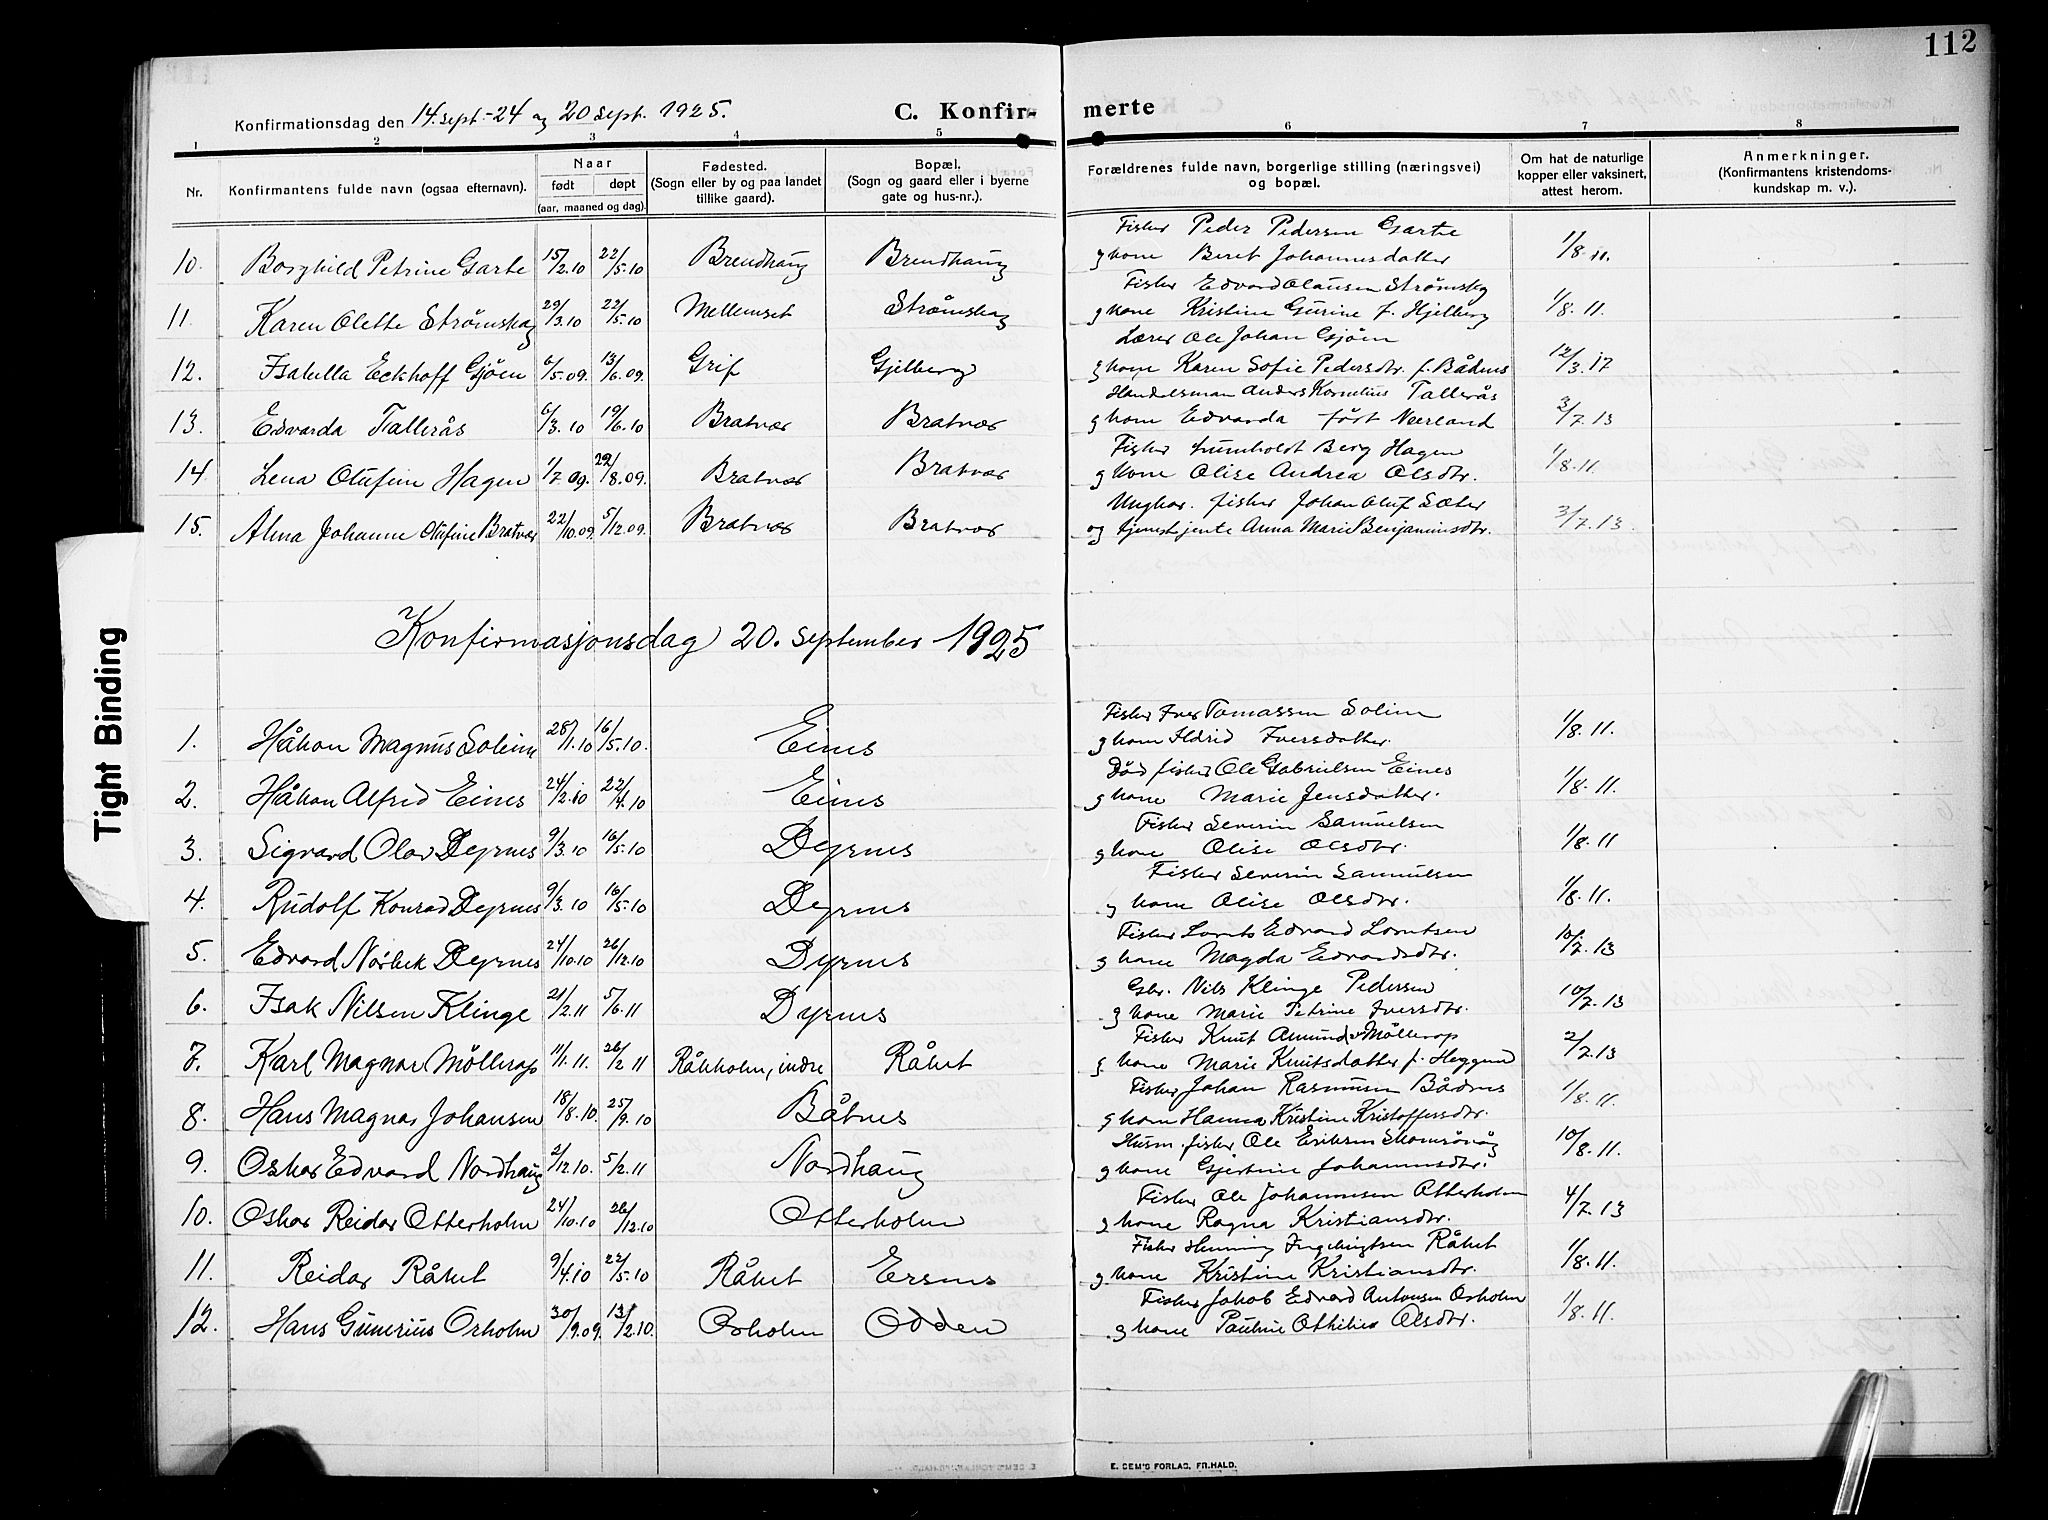 112
Konfirmationsdag den 14. sept.-24 og 20 sept. 1925.
C. Konfir-merte
1 2 3 4 5 6 7 8
Nr.
Konfirmantens fulde navn (ogsaa efternavn).
Naar
født døpt
(aar, maaned og dag).
Fødested.
(Sogn eller by og paa landet
tillike gaard).
Bopæl.
(Sogn og gaard eller i byerne
gate og hus-nr.).
Forældrenes fulde navn, borgerlige stilling (næringsvei)
og bopæl.
Om hat de naturlige
kopper eller vaksinert,
attest herom.
Anmerkninger.
(Konfirmantens kristendoms-
kundskap m. v.).
Fisker Peder Pedersen Garte
10. Borghild Petrine Garte 15/2.10 22/5.10 Brendhaug Brendhaug og kone Beret Johannesdatter 1/8.11.
Fisker Edvard Olausen Strømskag
11. Karen Olette Strømskag 29/3.10 22/5.10 Mellemset Strømskag og kone Kristine Gurine f. Hjelberg 1/8.11.
Lærer Ole Johan Gjøen
12. Isabella Eckhoff Gjøen 6/5.09. 13/6.09. Grif Gjelberg og kone Karen Sofie Pedersdtr. f. Båtnes 12/3.17
Handelsman Anders Kornelius Tallerås
13. Edvarda Tallerås 6/3.10 19/6.10 Bratvær Bratvær og kone Edvarda født Neerland 3/7.13
Fisker Humholdt Berg Hagen
14 Lena Olufine Hagen 1/7 09. 22/8.09. Bratvær Bratvær og kone Olise Andrea Olsdtr. 1/8.11.
Ungkar. fisker Johan Oluf Sæter
15. Alma Johanne Olufine Bratvær 22/10.09. 5/12.09. Bratvær Bratvær og tjenestjente Anna Marie Benjaminsdtr. 3/7.13.
Konfirmasjonsdag 20. september 1925
Fisker Iver Tomassen Solim
1. Håkon Magnus Soleim 28/1.10 16/5.10. Eines og kone Ildrid Iversdatter. 1/8.11.
Død fisker Ole Gabrielsen Eines
2. Håkon Alfred Eines 24/2.10 22/4.10 Eines og kone Marie Jensdatter. 1/8.11.
Fisker Severin Samuelsen
3. Sigvard Olav Dyrnes 9/3.10 16/5.10 Dyrnes og kone Olise Olsdtr. 1/8.11
Fisker Severin Samuelsen
4. Rudolf Konrad Dyrnes 9/3.10 16/5.10 Dyrnes og kone Olise Olsdtr. 1/8.11.
Fisker Lornts Edvard Lorntsen
5. Edvard Norbek Dyrnes 24/10.10 26/12.10 Dyrnes og kone Magda Edvardsdtr. 10/7.13
Gbr. Nils Klinge Pedersen
6. Isak Nilsen Klinge 21/2.11 5/6.11 Dyrnes og kone Marie Petrine Iversdtr. 10/7.13
Fisker Knut Amund Möllerop
7. Karl Magnar Möllerop 11/1.11. 26/2 11 Råkholm, indre Råket og kone Marie Knutsdatter f. Heggem 2/7.13
Fisker Johan Rasmusen Bårdnes
8. Hans Magnas Johansen 18/8.10. 25/9.10 Båtnes og kone Hanna Kristine Kristoffersdtr. 1/8.11.
Husm. fisker Ole Eriksen Skomsövåg
9. Oskar Edvard Nordhaug 2/12.10. 5/2.11 Nordhaug og kone Gjertine Johannesdtr. 10/8.11.
Fisker Ole Johannesen Otterholm
10. Oskar Reidar Otterholm 24/10.10 26/12.10 Otterholm og kone Ragna Kristiansdtr. 4/7.13
Fisker Henning Ingebrigtsen Råket
11. Reidar Råket 9/4.10 22/5.10 Råket Ersnes og kone Kristine Kristiansdtr. 1/8.11.
Fisker Jakob Edvard Antonsen Orholm
12. Hans Gunerius Orholm 30/9.09. 13/2.10. Orholm Odden og kone Pauline Othilie Olsdtr. 1/8.11.
E. SEM'S FORLAG, FR.HALD.
Tight Binding